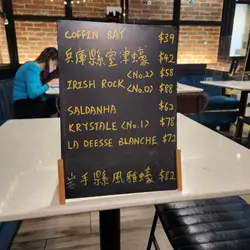 COFFIN BAY $39
兵庫縣室津蠔 $42
(No.2) $58
IRISH ROCK (No.0) $88
SALDANHA $62
KRYSTALE (No.1) $78
LA DEESSE BLANCHE $72
岩手縣風雅蠔 $82